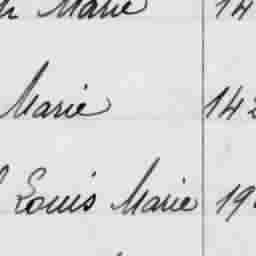 Marie 14
Marie 142
Louis Marie 19